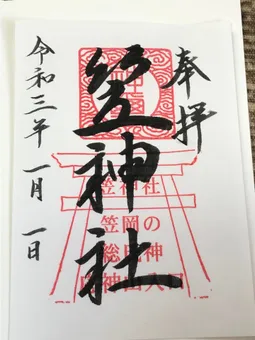 奉拝
笠神社
令和三年一月一日
笠神社
笠岡の
総氏神